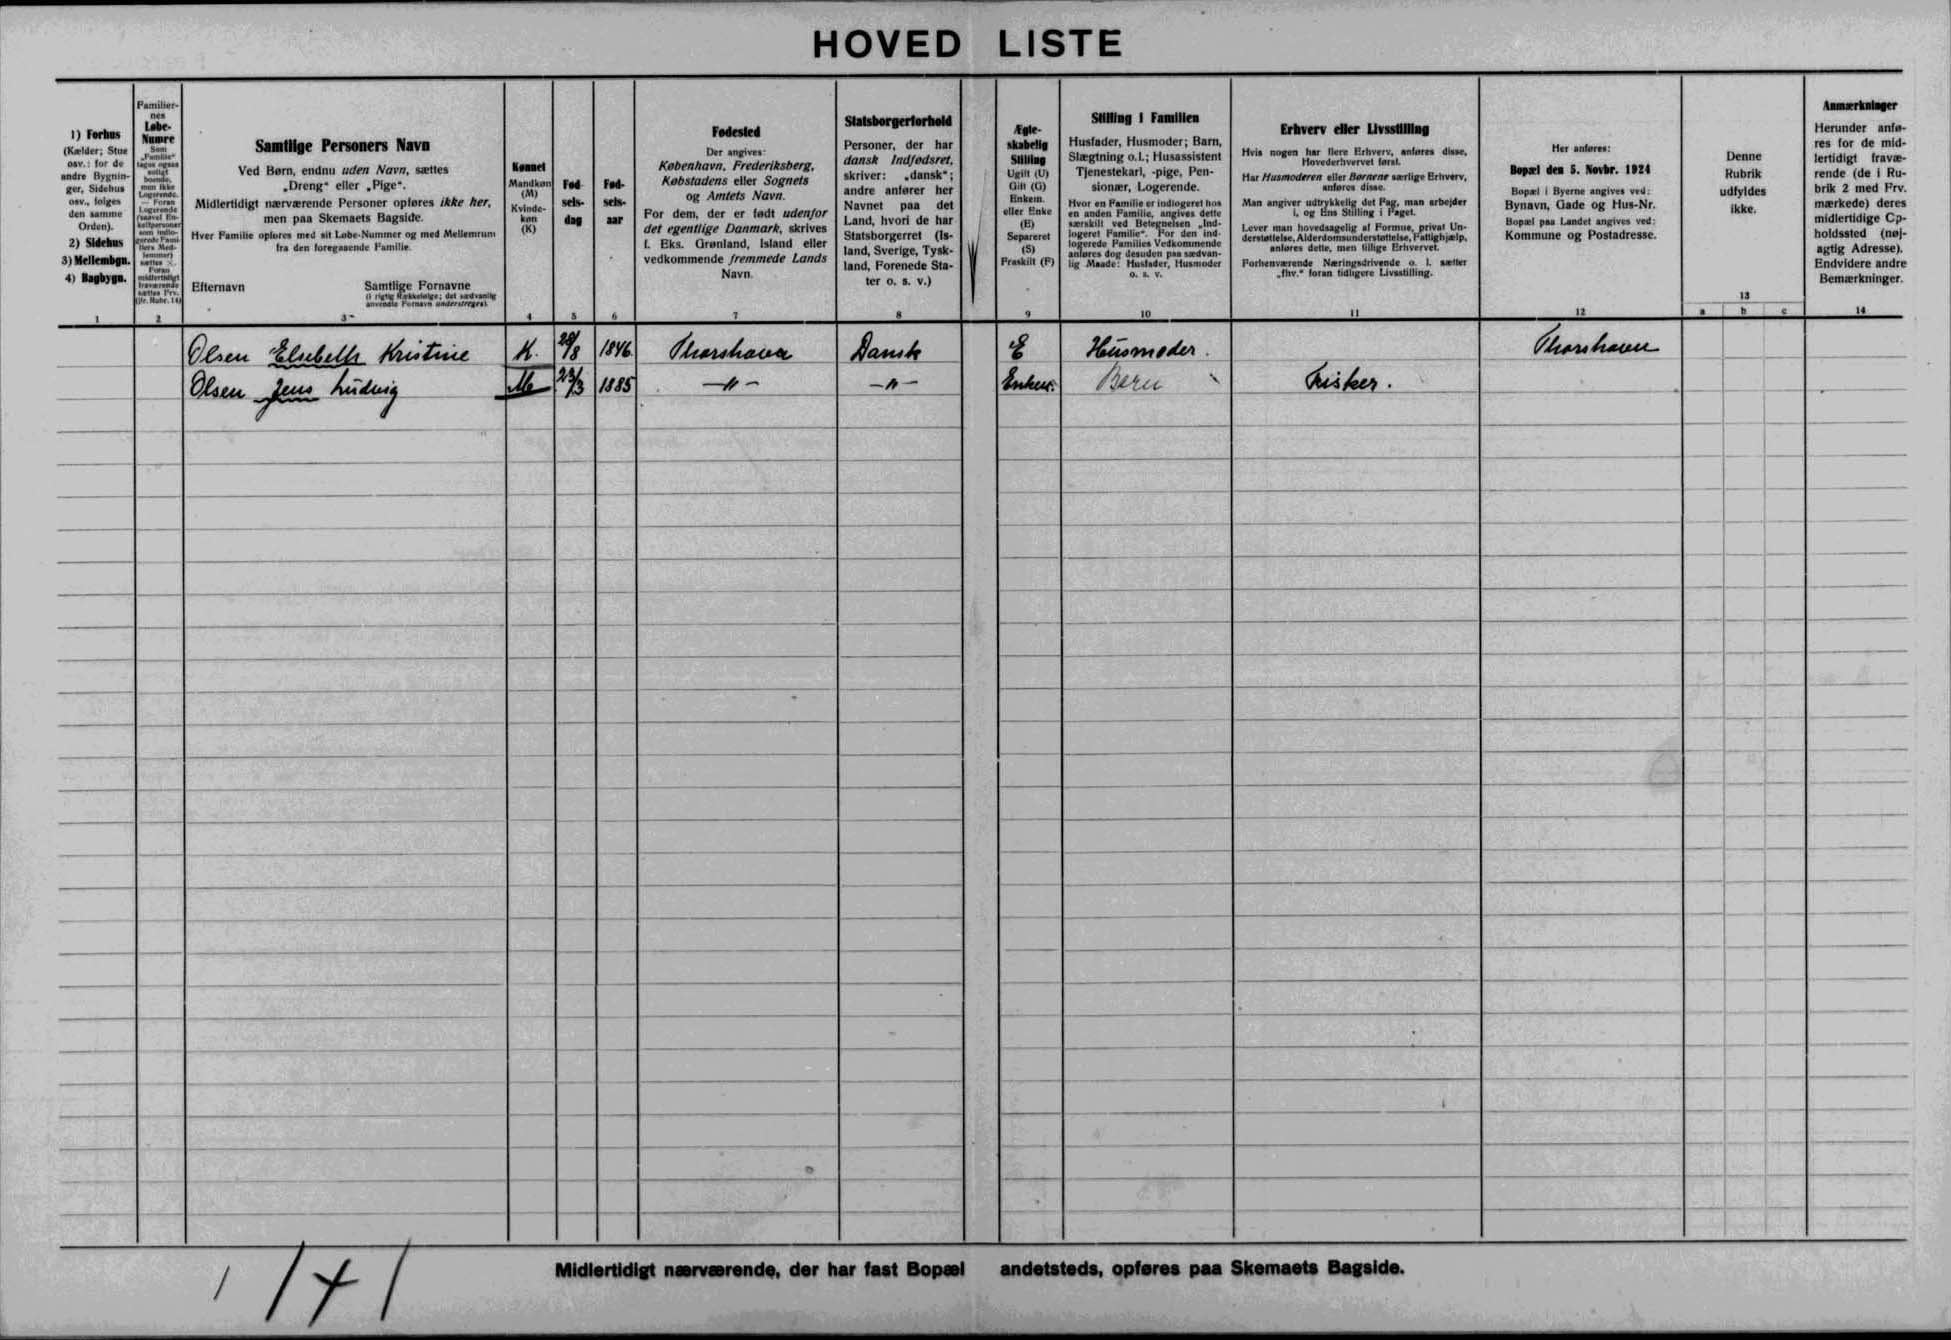 HOVED LISTE
1) Forhus
(Kælder; Stue
osv.: for de
andre Bygnin-
ger, Sidehus
osv., følges
den samme
Orden).
2) Sidehus
3) Mellembgn.
4) Bagbygn.
1
Familier-
nes
Løbe-
Numre
Som
„Familie"
tages ogsaa
enligt
boende,
men ikke
Logerende.
— Foran
Logerende
2
Samtlige Personers Navn
Ved Børn, endnu uden Navn, sættes
„Dreng" eller „Pige".
Midlertidigt nærværende Personer opføres ikke her,
men paa Skemaets Bagside.
Hver Familie opføres med sit Løbe-Nummer og med Mellemrum
fra den foregaaende Familie.
Efternavn Samtlige Fornavne
(i rigtig Rækkefølge; det sædvanlig
anvendte Fornavn understreges).
3
Kønnet
Mandkøn
(M)
Kvinde-
køn
(K)
4
Fød-
sels-
dag
5
Fød-
sels-
aar
6
Fødested
Der angives:
København, Frederiksberg,
Købstadens eller Sognets
og Amtets Navn.
For dem, der er født udenfor
det egentlige Danmark, skrives
f. Eks. Grønland, Island eller
vedkommende fremmede Lands
Navn.
7
Statsborgerforhold
Personer, der har
dansk Indfødsret,
skriver: „dansk";
andre anfører her
Navnet paa det
Land, hvori de har
Statsborgerret (Is-
land, Sverige, Tysk-
land, Forenede Sta-
ter o. s. v.)
8
Ægte-
skabelig
Stilling
Ugift (U)
Gift (G)
Enkem.
eller Enke
(E)
Separeret
(S)
Fraskilt (F)
9
Stilling i Familien
Husfader, Husmoder; Barn,
Slægtning o.l.; Husassistent
Tjenestekarl, -pige, Pen-
sionær, Logerende.
Hvor en Familie er indlogeret hos
en anden Familie, angives dette
særskilt ved Betegnelsen „Ind-
logeret Familie". For den ind-
logerede Families Vedkommende
anføres dog desuden paa sædvan-
lig Maade: Husfader, Husmoder
o. s. v.
10
Erhverv eller Livsstilling
Hvis nogen har flere Erhverv, anføres disse,
Hovederhvervet først.
Har Husmoderen eller Børnene særlige Erhverv,
anføres disse.
Man angiver udtrykkelig det Fag, man arbejder
i, og Ens Stilling i Faget.
Lever man hovedsagelig af Formue, privat Un-
derstøttelse, Alderdomsunderstøttelse, Fattighjælp,
anføres dette, men tillige Erhvervet.
Forhenværende Næringsdrivende o. l. sætter
„fhv." foran tidligere Livsstilling.
11
Her anføres:
Bopæl den 5. Novbr. 1924
Bopæl i Byerne angives ved:
Bynavn, Gade og Hus-Nr.
Bopæl paa Landet angives ved:
Kommune og Postadresse.
12
Denne
Rubrik
udfyldes
ikke.
13
a b c
Anmærkninger
Herunder anfø-
res for de mid-
lertidigt fravæ-
rende (de i Ru-
brik 2 med Frv.
mærkede) deres
midlertidige Op-
holdssted (nøj-
agtig Adresse).
Endvidere andre
Bemærkninger.
14
Olsen Elsebeth Kristine K. 28/8 1846. Thorshavn Dansk E Husmoder. Thorshavn
Olsen Jens Ludvig M 23/3 1885 —"— —"— Enkem. Barn Fisker.
Midlertidigt nærværende, der har fast Bopæl andetsteds, opføres paa Skemaets Bagside.